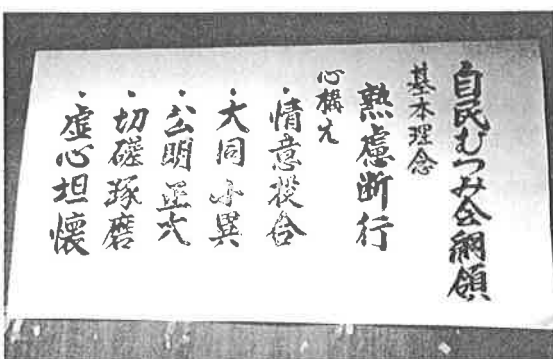 自民むつみ会綱領
基本理念
熟慮断行
心構え
・情意投合
・大同小異
・公明正大
・切磋琢磨
・虚心坦懐